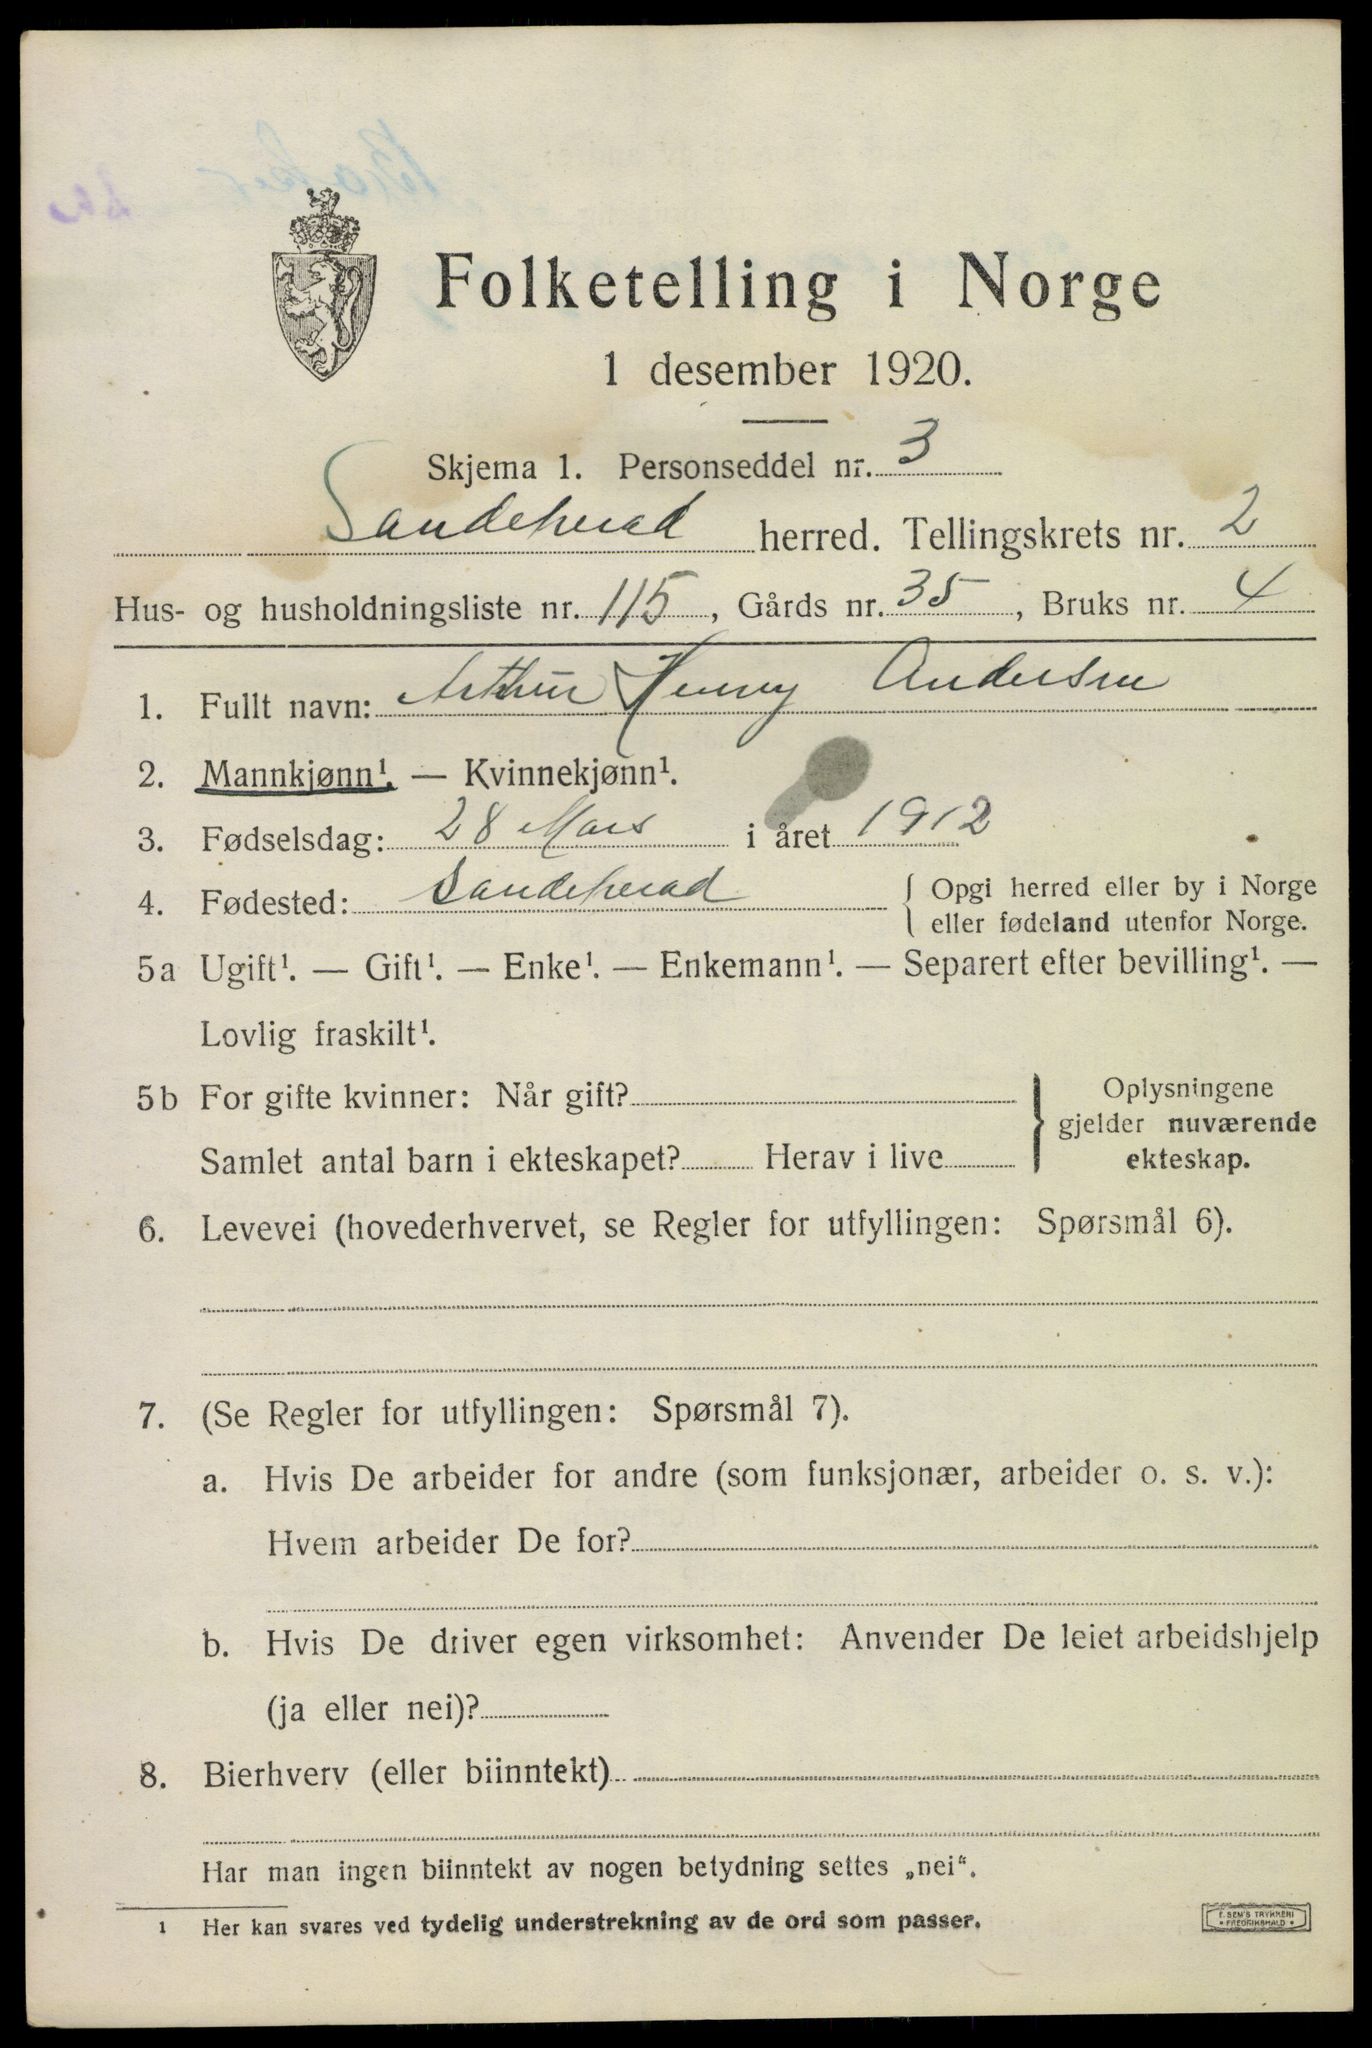 Folketelling i Norge
1 desember 1920.
Skjema 1. Personseddel nr. 3
Sandeherad herred. Tellingskrets nr. 2
Hus- og husholdningsliste nr. 115, Gårds nr. 35, Bruks nr. 4
1. Fullt navn: Arthur Henry Andersen
2. Mannkjønn¹. — Kvinnekjønn¹.
3. Fødselsdag: 28 Mars i året 1912
4. Fødested: Sandeherad { Opgi herred eller by i Norge
eller fødeland utenfor Norge.
5a Ugift¹. — Gift¹. — Enke¹. — Enkemann¹. — Separert efter bevilling¹. —
Lovlig fraskilt¹.
5b For gifte kvinner: Når gift?
Samlet antal barn i ekteskapet? Herav i live
} Oplysningene
gjelder nuværende
ekteskap.
6. Levevei (hovederhvervet, se Regler for utfyllingen: Spørsmål 6).
7. (Se Regler for utfyllingen: Spørsmål 7).
a. Hvis De arbeider for andre (som funksjonær, arbeider o. s. v.):
Hvem arbeider De for?
b. Hvis De driver egen virksomhet: Anvender De leiet arbeidshjelp
(ja eller nei)?
8. Bierhverv (eller biinntekt)
Har man ingen biinntekt av nogen betydning settes „nei“.
1 Her kan svares ved tydelig understrekning av de ord som passer.
E. SEM'S TRYKKERI
• FREDRIKSHALD •